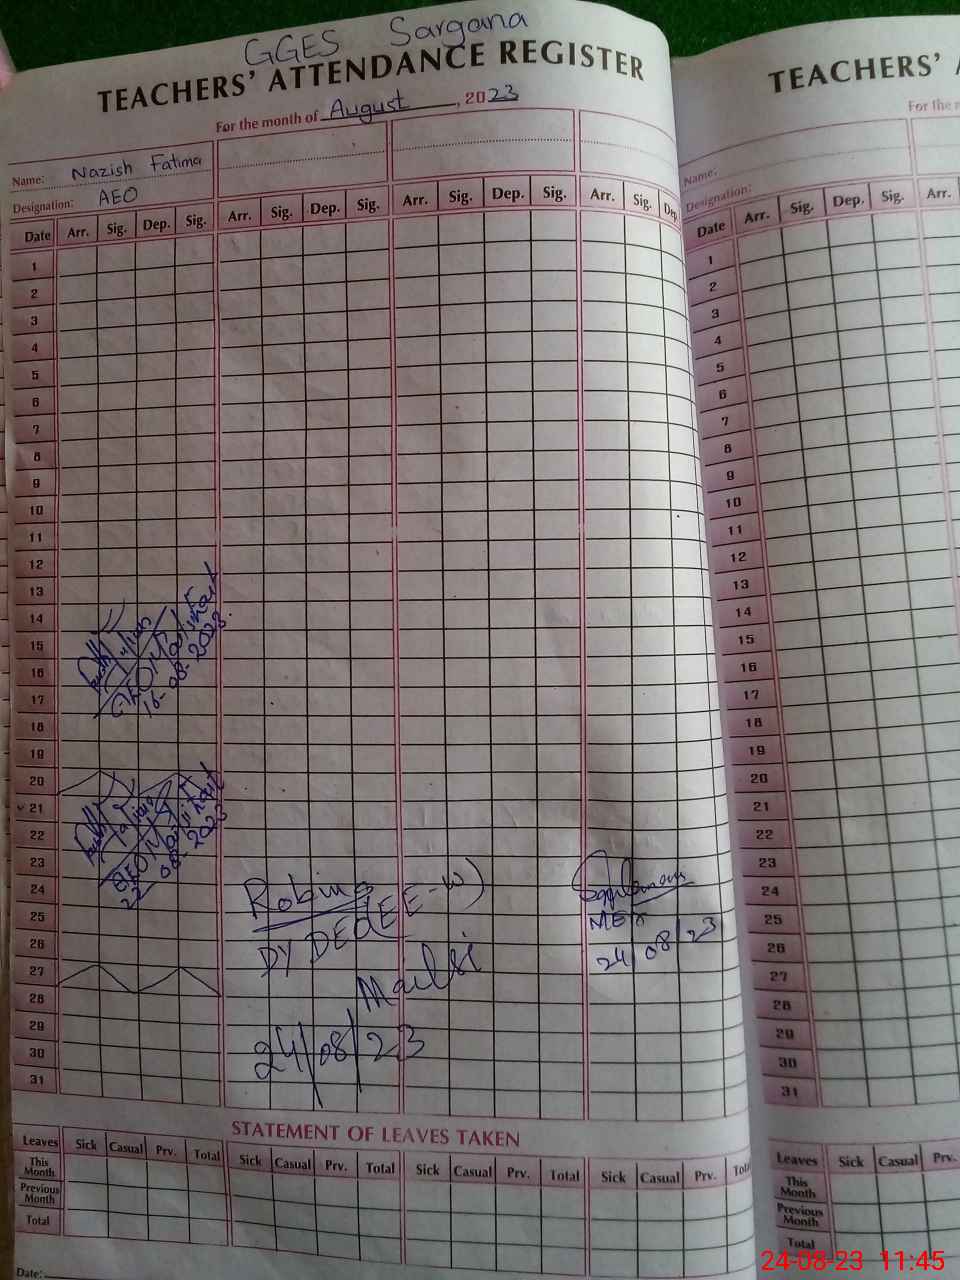 GGES Sargana
TEACHERS' ATTENDANCE REGISTER
For the month of August, 2023
Name: Nazish Fatima
Designation: AEO
Date Arr. Sig. Dep. Sig. Arr. Sig. Dep. Sig. Arr. Sig. Dep. Sig. Arr. Sig. Dep.
1
2
3
4
5
6
7
8
9
10
11
12
13
14
15
16
17
18
19
20
21
22
23
24
25
26
27
28
29
30
31
16-08-2023
22 08 2023
Robina
DY DEO(EE-W)
Mailsi
24/08/23
24/08/23
STATEMENT OF LEAVES TAKEN
Leaves Sick Casual Prv. Total Sick Casual Prv. Total Sick Casual Prv. Total Sick Casual Prv. Total
This Month
Previous Month
Total
Date:
TEACHERS'
For the
Name:
Designation:
Date Arr. Sig. Dep. Sig. Arr.
1
2
3
4
5
6
7
8
9
10
11
12
13
14
15
16
17
18
19
20
21
22
23
24
25
26
27
28
29
30
31
Leaves Sick Casual Prv.
This Month
Previous Month
Total
24-08-23 11:45